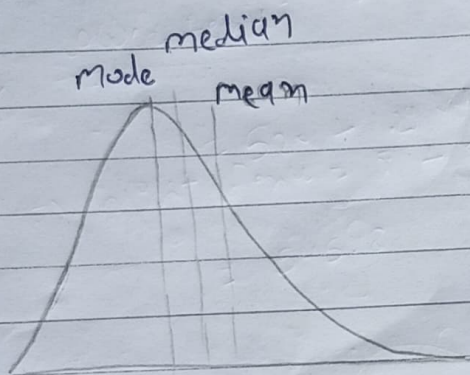 median
Mode
mean